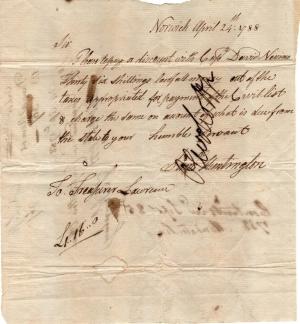 Norwich April 24th 1788
Sir
Please to pay a discount with Capt. David Nevins
Thirty Six Shillings lawful out of the
taxes appropriated for payment of the Civil list
& charge the same on account of what is due from
the State to your humble Servant
Huntington
To Treasurer Lawrence
£1.16..0